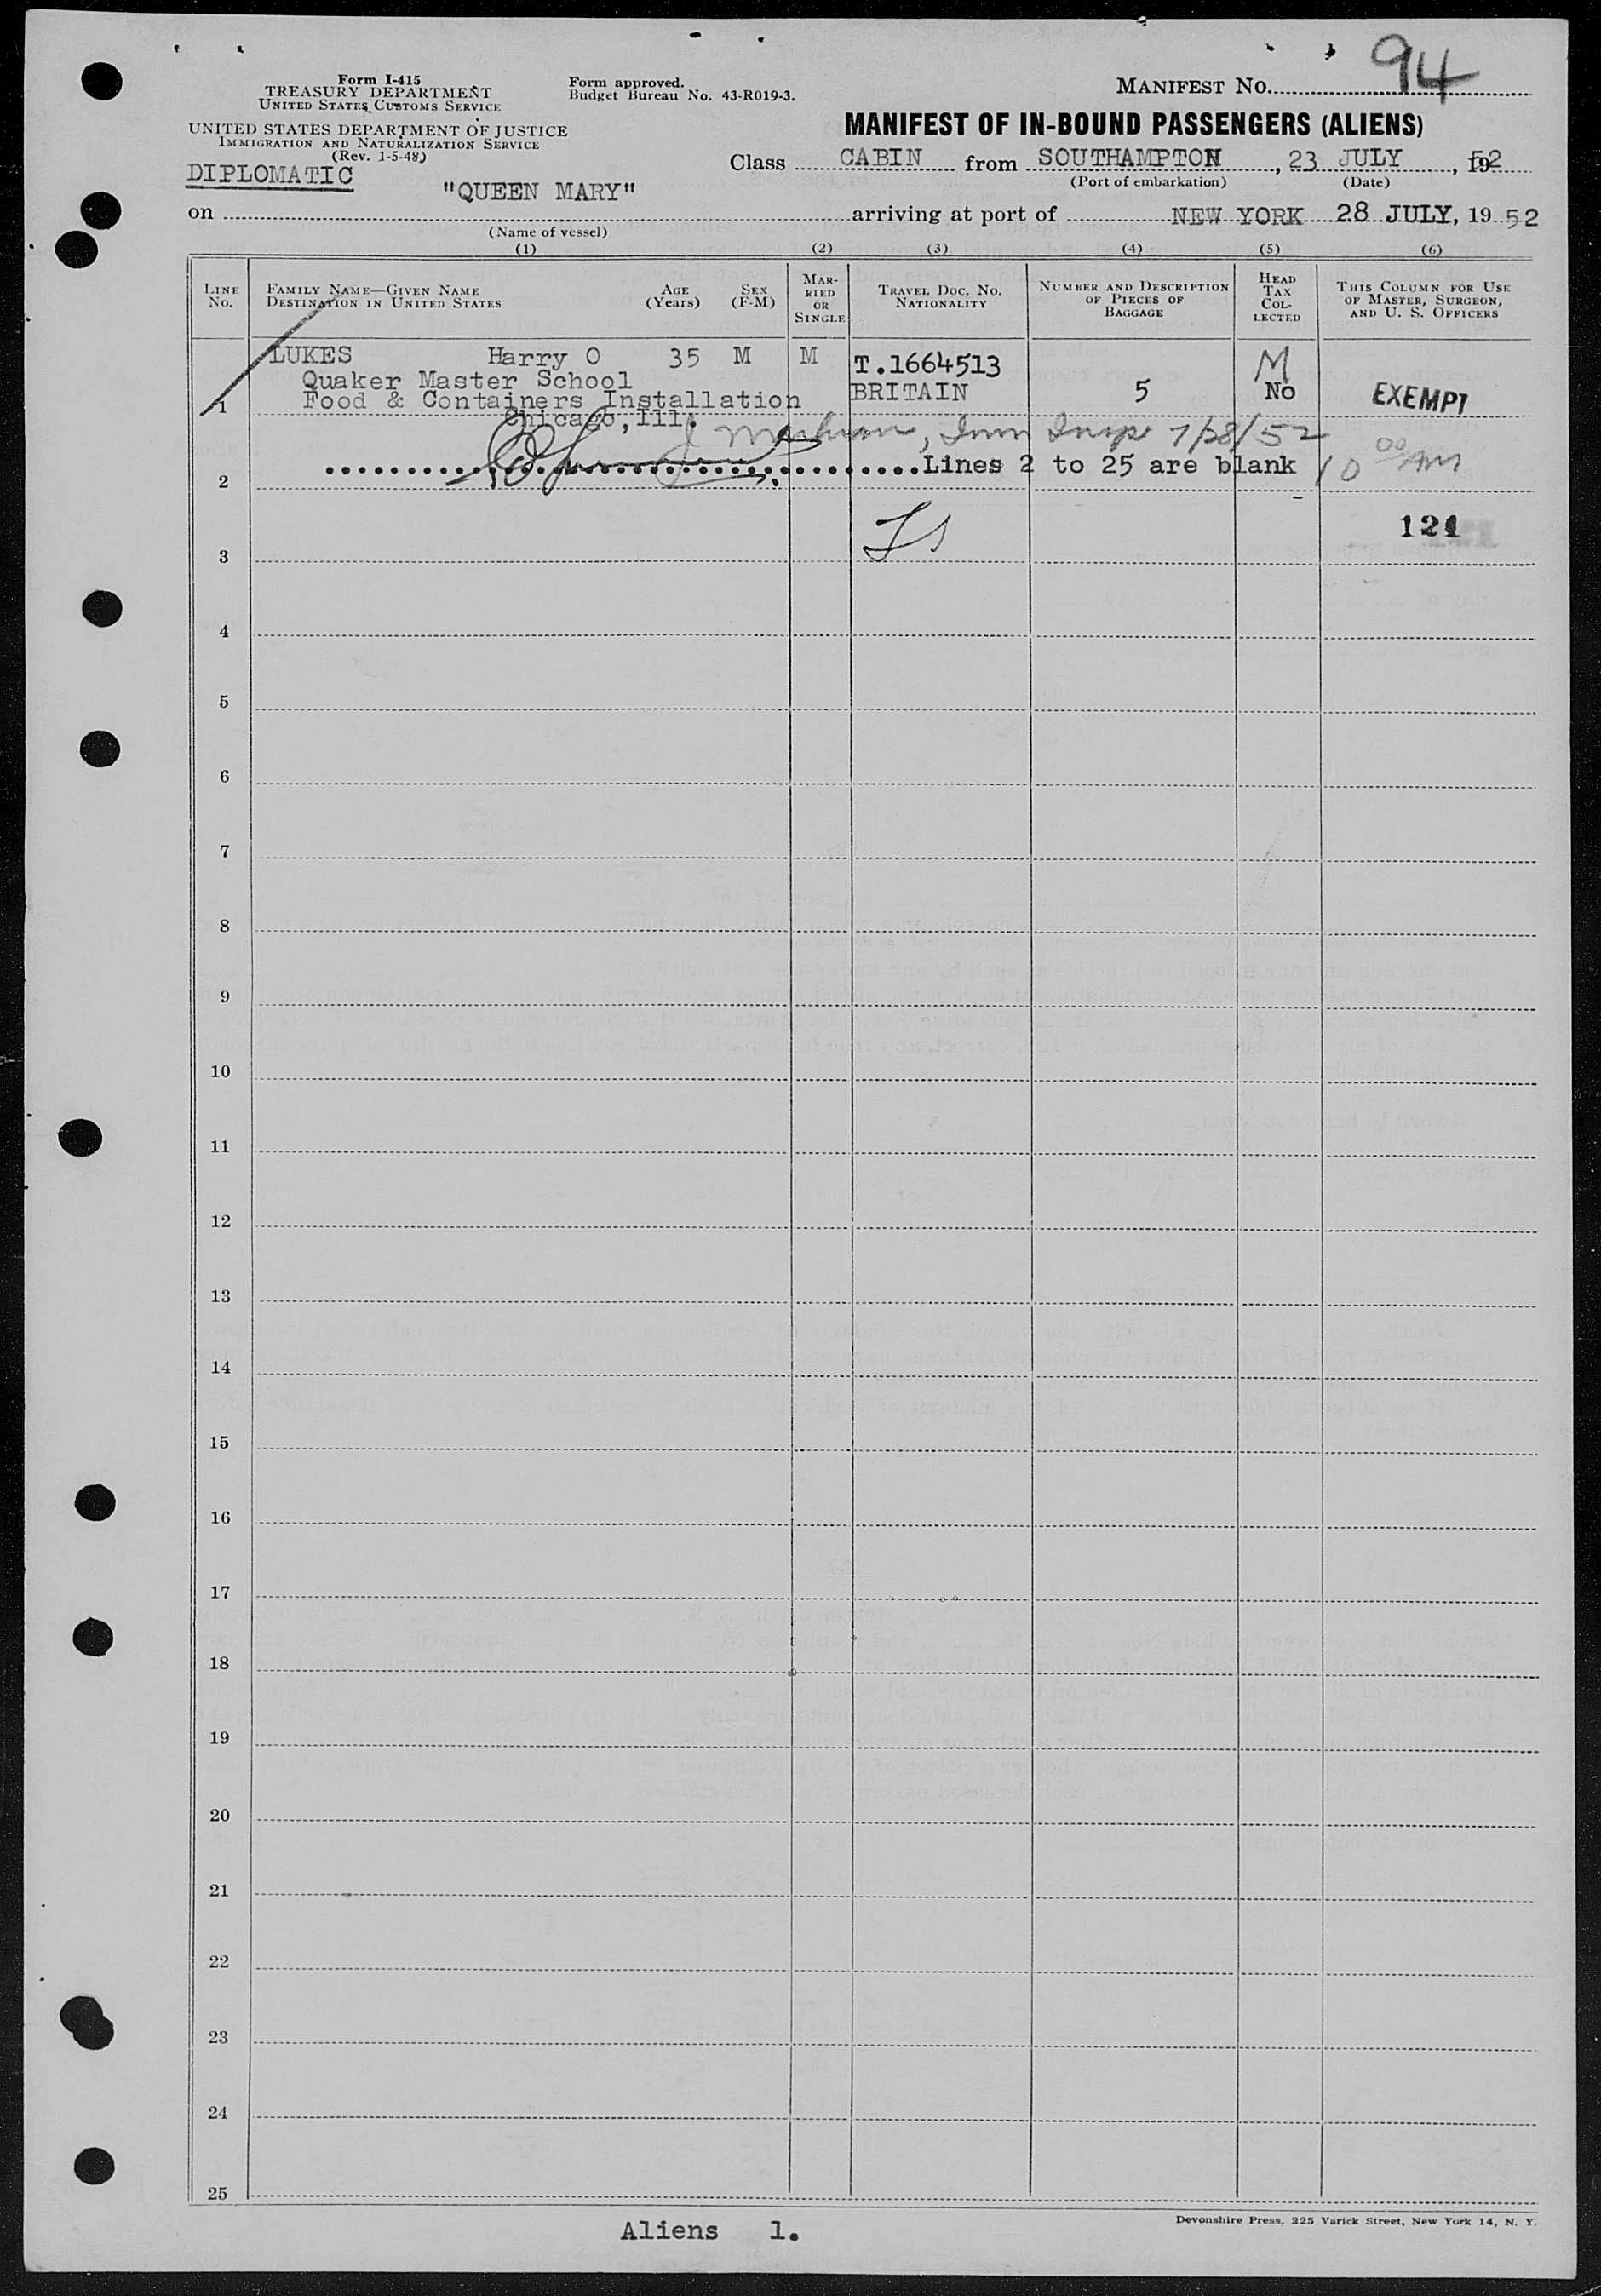 94
Form I-415
TREASURY DEPARTMENT
UNITED STATES CUSTOMS SERVICE
Form approved.
Budget Bureau No. 43-R019-3.
MANIFEST NO.
UNITED STATES DEPARTMENT OF JUSTICE
IMMIGRATION AND NATURALIZATION SERVICE
(Rev. 1-5-48)
MANIFEST OF IN-BOUND PASSENGERS (ALIENS)
DIPLOMATIC
Class CABIN from SOUTHAMPTON, 23 JULY, 1952
(Port of embarkation) (Date)
on "QUEEN MARY" arriving at port of NEW YORK 28 JULY, 19 52
(Name of vessel)
(1) (2) (3) (4) (5) (6)
LINE No. FAMILY NAME—GIVEN NAME DESTINATION IN UNITED STATES AGE (Years) SEX (F-M) MARRIED OR SINGLE TRAVEL DOC. NO. NATIONALITY NUMBER AND DESCRIPTION OF PIECES OF BAGGAGE HEAD TAX COLLECTED THIS COLUMN FOR USE OF MASTER, SURGEON, AND U. S. OFFICERS
LUKES Harry O 35 M M T.1664513 M
Quaker Master School
1 Food & Containers Installation BRITAIN 5 No EXEMPT
Chicago, Ill.
Imm Insp 7/28/52
2 Lines 2 to 25 are blank 10 00 AM
3 121
4
5
6
7
8
9
10
11
12
13
14
15
16
17
18
19
20
21
22
23
24
25
Aliens 1.
Devonshire Press, 225 Varick Street, New York 14, N. Y.